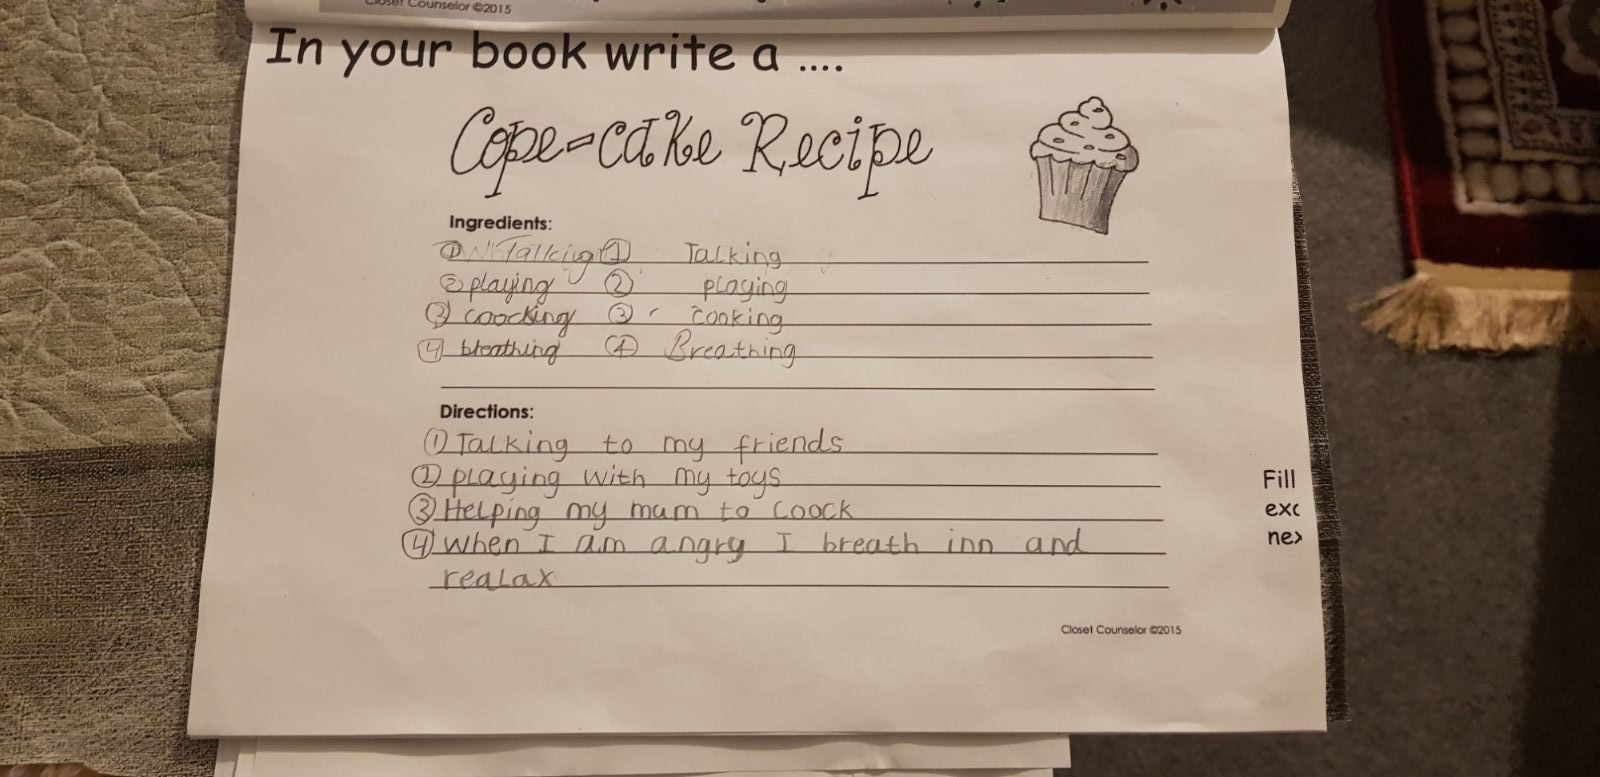 Closet Counselor ©2015
In your book write a ....
Cope-cake Recipe
Ingredients:
① Talking ① Talking
② playing ② playing
③ coocking ③ cooking
④ breathing ④ Breathing
Directions:
① Talking to my friends
② playing with my toys
③ Helping my mum to coock
④ when I am angry I breath inn and
realax
Fill
exc
nex
Closet Counselor ©2015